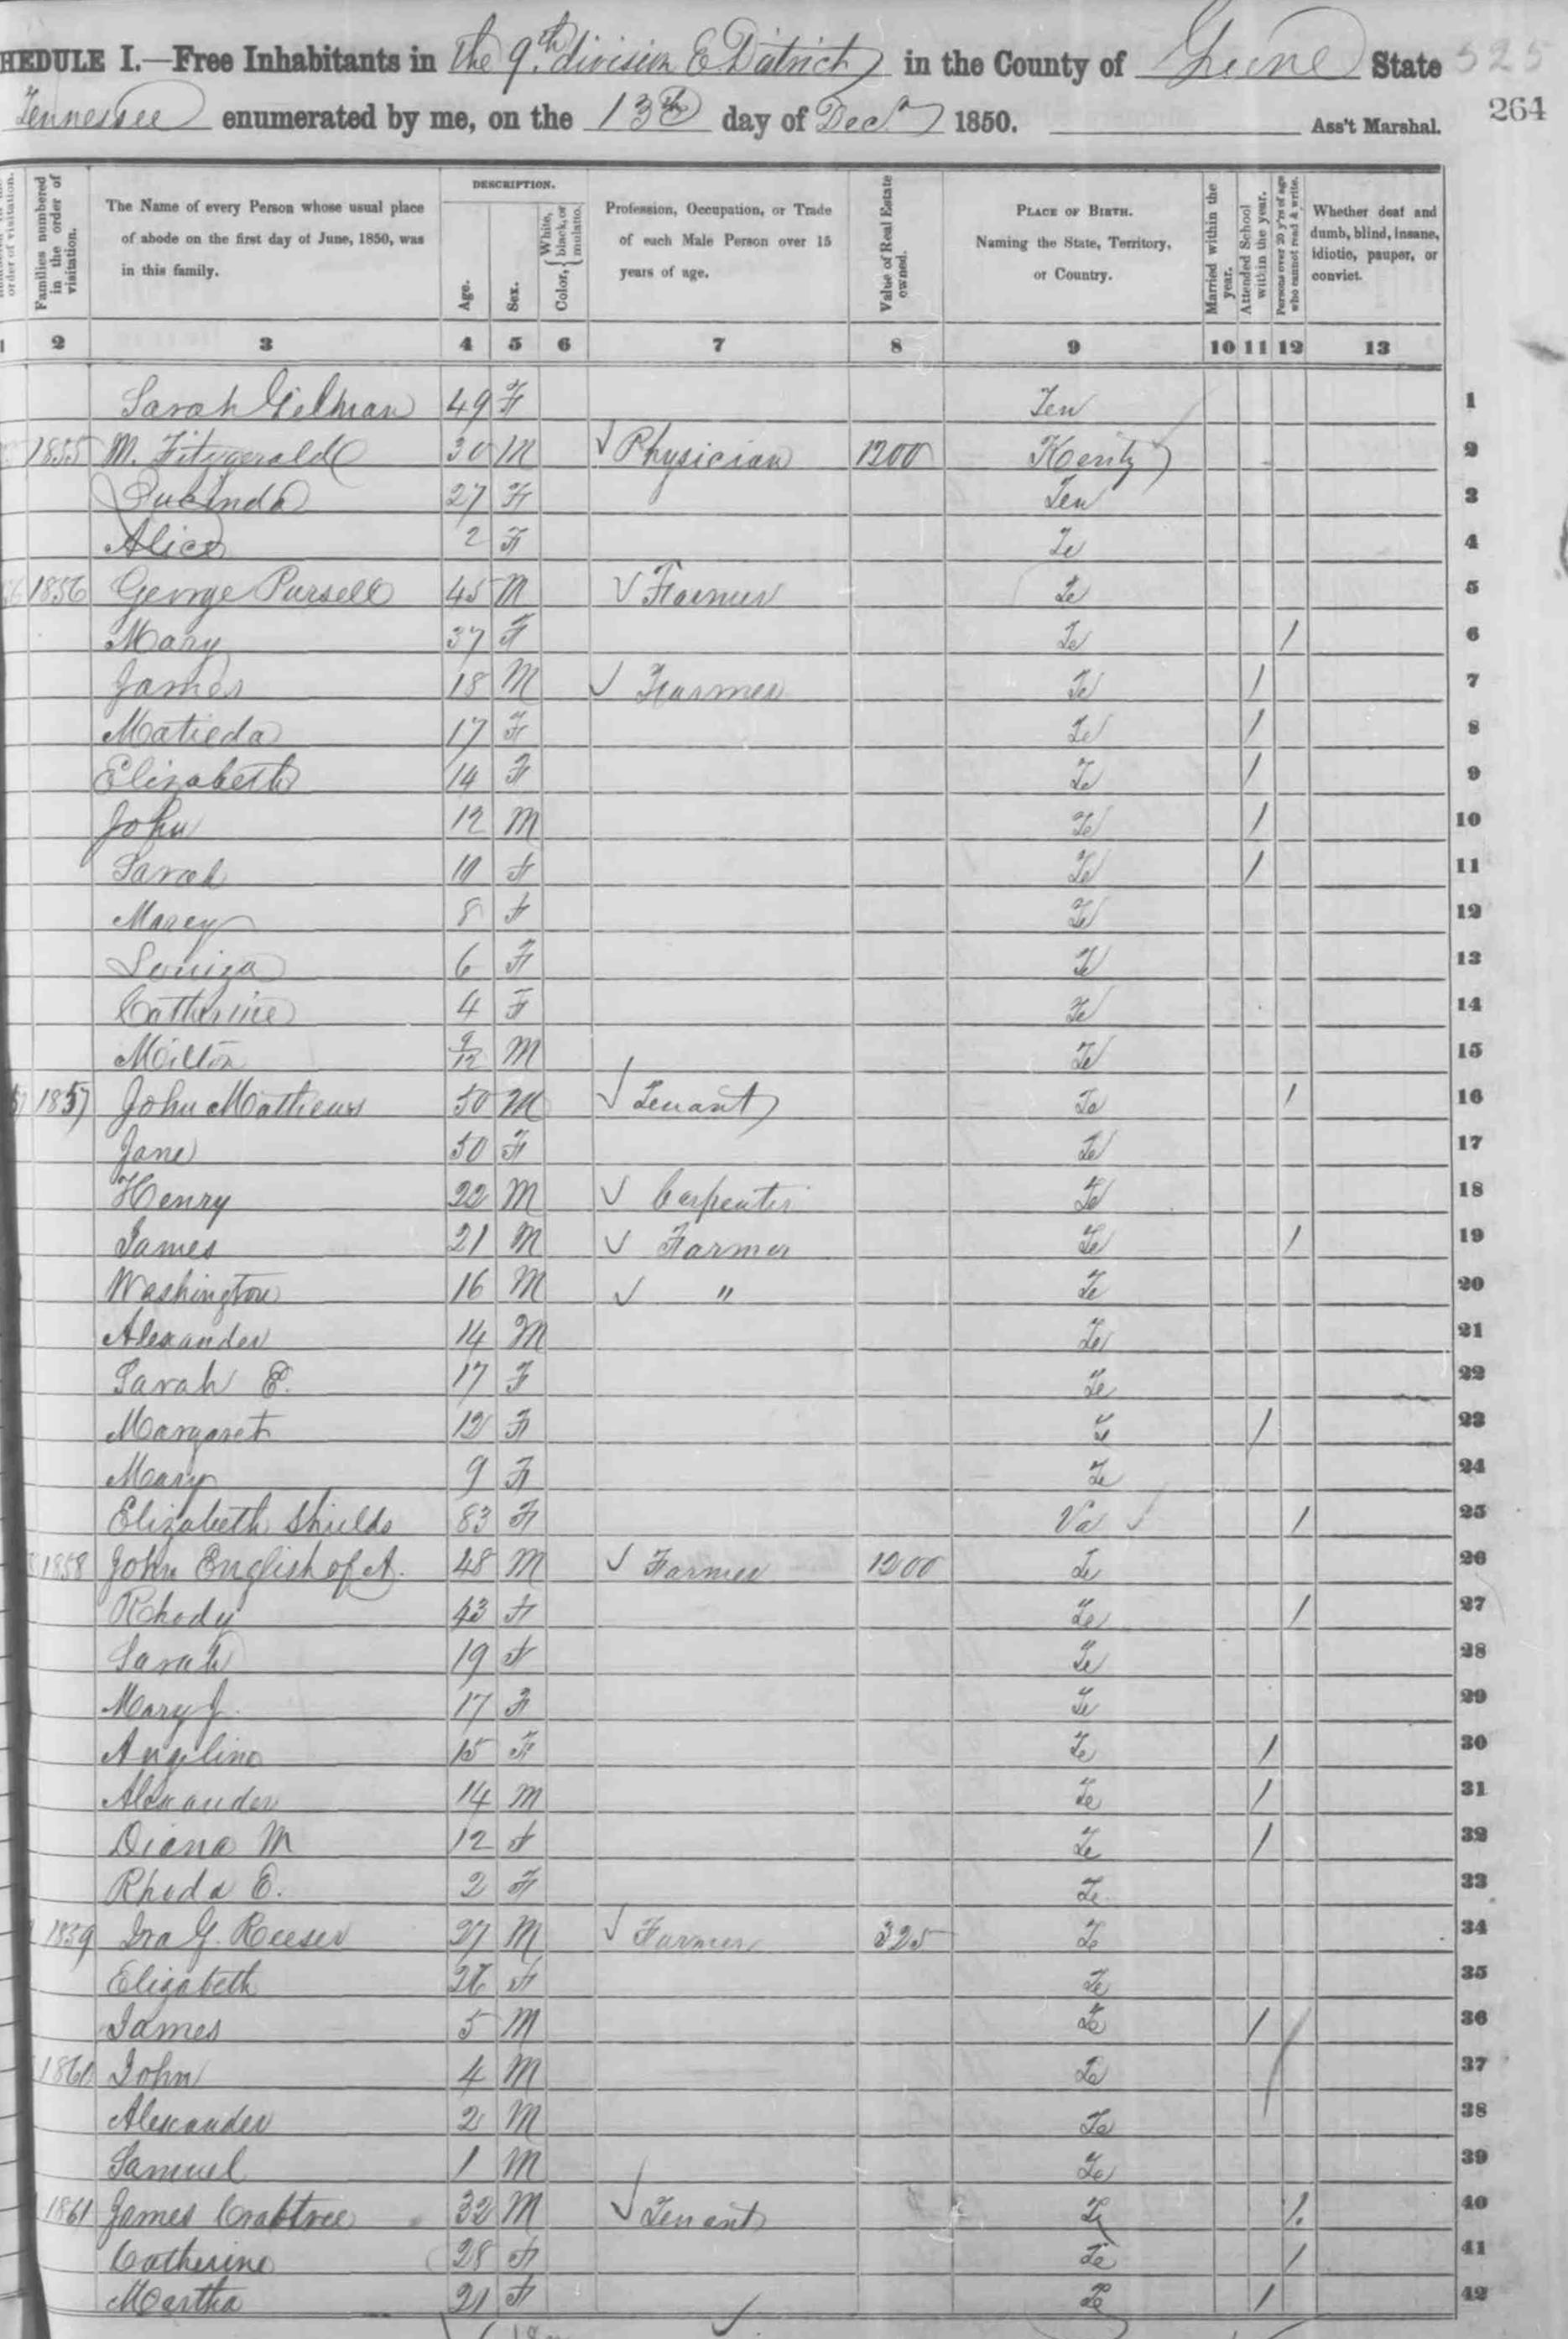 HEDULE I.—Free Inhabitants in the 9th division E District in the County of Greene State 325
Tennessee enumerated by me, on the 13th day of Dec. 1850. Ass't Marshal. 264
order of visitation.
Families numbered in the order of visitation.
The Name of every Person whose usual place of abode on the first day of June, 1850, was in this family.
DESCRIPTION.
Age.
Sex.
Color, { White, black, or mulatto.
Profession, Occupation, or Trade of each Male Person over 15 years of age.
Value of Real Estate owned.
PLACE OF BIRTH. Naming the State, Territory, or Country.
Married within the year.
Attended School within the year.
Persons over 20 y'rs of age who cannot read & write.
Whether deaf and dumb, blind, insane, idiotic, pauper, or convict.
1 2 3 4 5 6 7 8 9 10 11 12 13
Sarah Gilman 49 F Ten 1
1855 M. Fitzgerald 30 M √ Physician 1200 Kenty 2
Lucinda 27 F Ten 3
Alice 2 F Te 4
1856 George Pursell 45 M √ Farmer Te 5
Mary 37 F Te / 6
James 18 M √ Farmer Te / 7
Matilda 17 F Te / 8
Elizabeth 14 F Te / 9
John 12 M Te / 10
Sarah 10 F Te / 11
Marey 8 F Te 12
Louiza 6 F Te 13
Catherine 4 F Te 14
Milton 9/12 M Te 15
1857 John Mathews 50 M √ Tenant Te / 16
Jane 50 F Te 17
Henry 22 M √ Carpenter Te 18
James 21 M √ Farmer Te / 19
Washington 16 M √ " Te 20
Alexander 14 M Te 21
Sarah E. 17 F Te 22
Margaret 12 F Te / 23
Mary 9 F Te 24
Elizabeth Shields 83 F Va √ / 25
1858 John English of A. 48 M √ Farmer 1200 Te 26
Rhody 43 F Te / 27
Sarah 19 F Te 28
Mary J. 17 F Te 29
Angeline 15 F Te / 30
Alexander 14 M Te / 31
Diana M 12 F Te / 32
Rhoda E. 2 F Te 33
1859 Ira G. Reeser 27 M √ Farmer 325 Te 34
Elizabeth 26 F Te 35
James 5 M Te / 36
1860 John 4 M Te 37
Alexander 2 M Te 38
Samuel 1 M Te 39
1861 James Crabtree 32 M √ Tenant Te / 40
Catherine 28 F Te / 41
Martha 21 F Te / 42